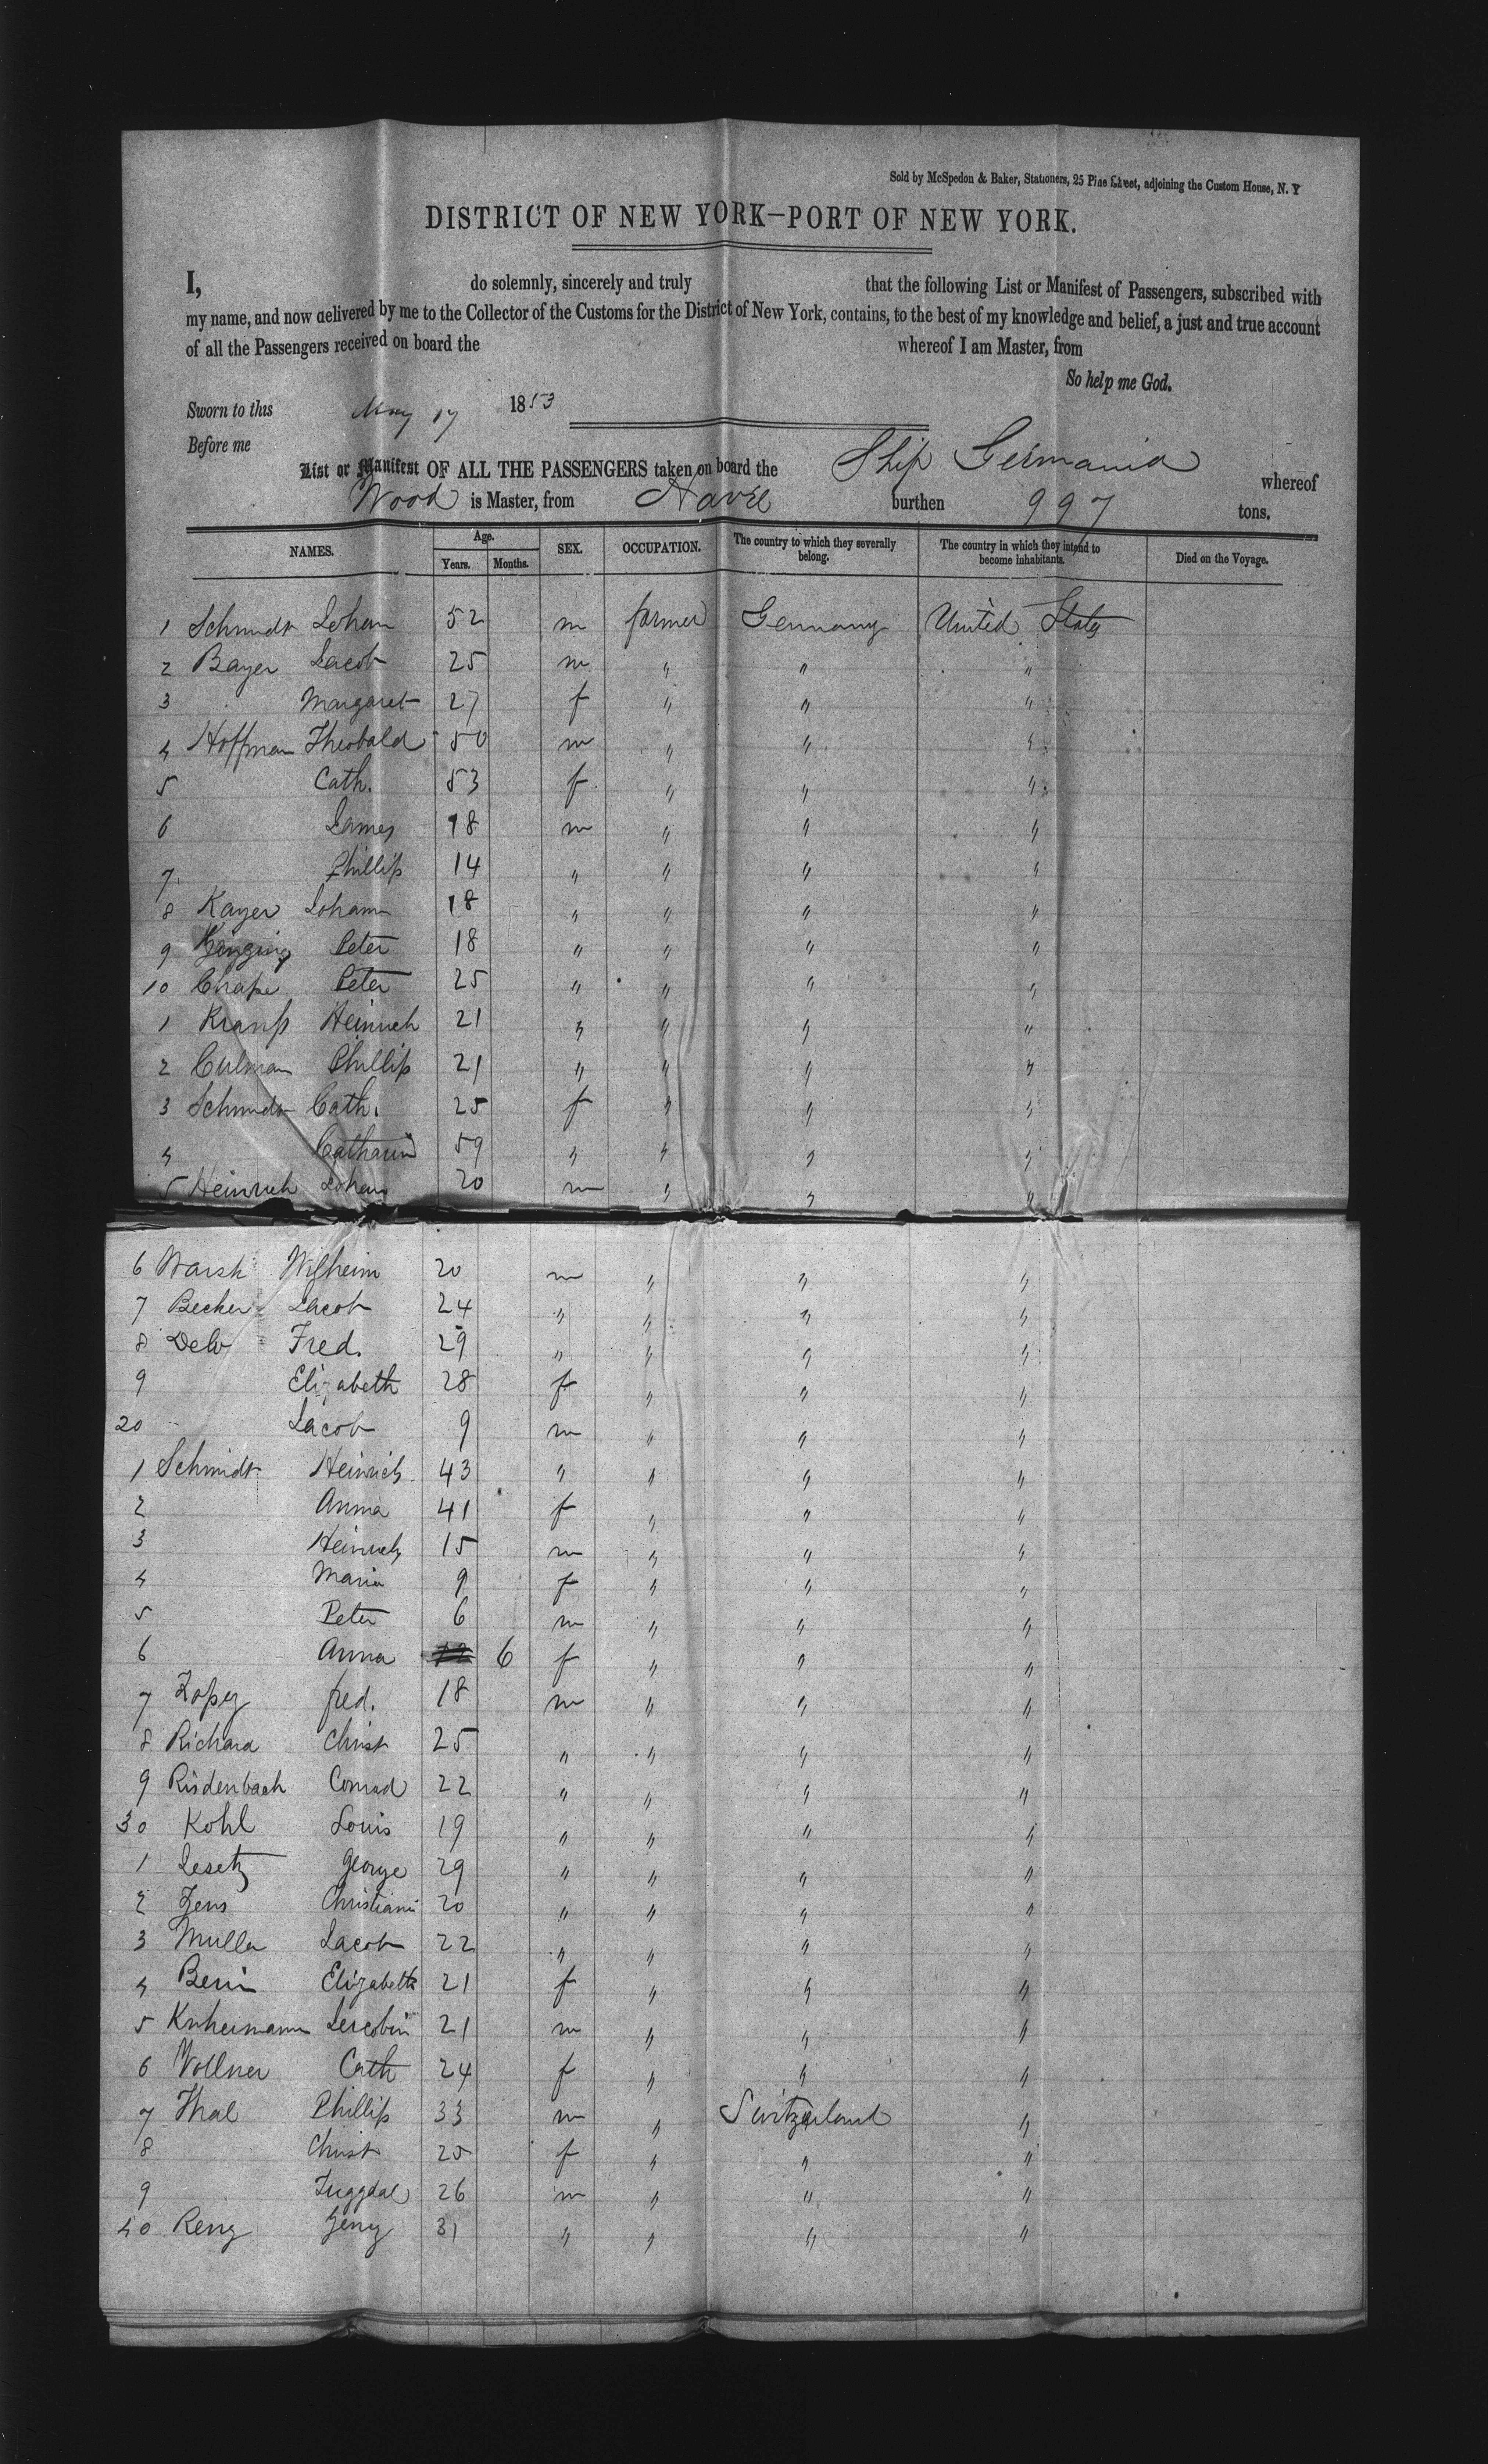 Sold by McSpedon & Baker, Stationers, 25 Pine Street, adjoining the Custom House, N. Y
DISTRICT OF NEW YORK—PORT OF NEW YORK.
I, do solemnly, sincerely and truly that the following List or Manifest of Passengers, subscribed with
my name, and now delivered by me to the Collector of the Customs for the District of New York, contains, to the best of my knowledge and belief, a just and true account
of all the Passengers received on board the whereof I am Master, from
So help me God.
Sworn to this May 17 1853
Before me
List or Manifest OF ALL THE PASSENGERS taken on board the Ship Germania whereof
Wood is Master, from Havre burthen 997 tons.
NAMES. Age. Years. Months. SEX. OCCUPATION. The country to which they severally belong. The country in which they intend to become inhabitants. Died on the Voyage.
1 Schmidt Johan 52 m farmer Germany United States
2 Bayer Jacob 25 m " " "
3 Margaret 27 f " " "
4 Hoffman Theobald 50 m " " "
5 Cath. 53 f " " "
6 James 18 m " " "
7 Phillip 14 " " " "
8 Kayer Johann 18 " " " "
9 Peter 18 " " " "
10 Peter 25 " " " "
1 Heinrich 21 " " " "
2 Culman Phillip 21 " " " "
3 Schmidt Cath. 25 f " " "
4 Catharin 59 " " " "
5 Heinrich Johan 20 m " " "
6 Warsh Wilheim 20 m " " "
7 Becker Jacob 24 " " " "
8 Fred. 29 " " " "
9 Elizabeth 28 f " " "
20 Jacob 9 m " " "
1 Schmidt Heinrich 43 " " " "
2 Anna 41 f " " "
3 Heinrich 15 m " " "
4 Maria 9 f " " "
5 Peter 6 m " " "
6 Anna 6 f " " "
7 fred. 18 m " " "
8 Richard Christ 25 " " " "
9 Risdenbach Conrad 22 " " " "
30 Kohl Louis 19 " " " "
1 Lesetz George 29 " " " "
2 Zens Christian 20 " " " "
3 Muller Jacob 22 " " " "
4 Elizabeth 21 f " " "
5 21 m " " "
6 Vollner Cath 24 f " " "
7 Thal Phillip 33 m " Switzerland "
8 Christ 25 f " " "
9 26 m " " "
40 Reny 31 " " " "